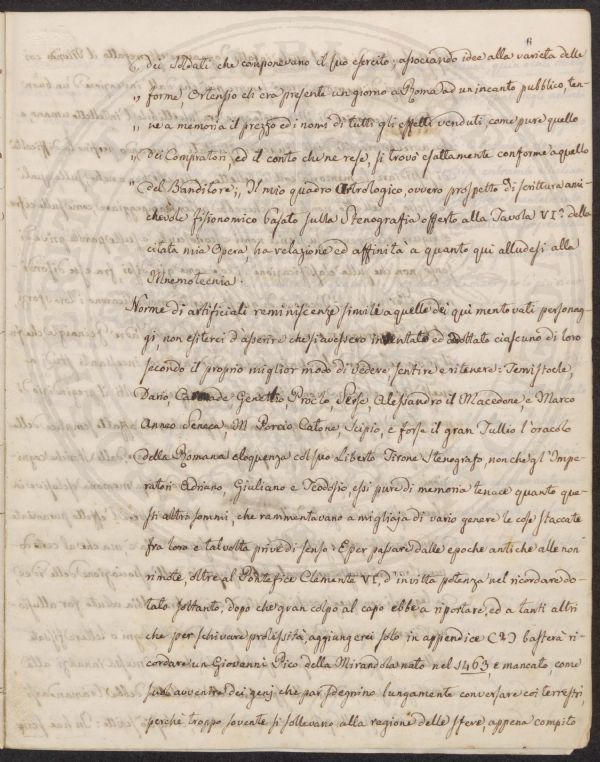 6
„ dei Soldati che componevano il suo esercito; asociando idee alla varietà delle
„ forme Ortensio ch'era presente un giorno a Roma ad un incanto pubblico, ten-
„ ne a memoria il prezzo ed i nomi di tutti gli effetti venduti, come pure quello
„ dei Compratori, ed il conto che ne rese, si trovò esattamente conforme a quello
„ del Banditore; „ Il mio quadro Astrologico, ovvero prospetto di scrittura ami-
chevole fisionomico basato sulla Stenografia offerto alla Tavola VI.ª della
citata mia Opera, ha relazione ed affinità a quanto qui alludesi alla
Mnemotecnia.
Norme di artificiali reminiscenze simili a quelle dei qui mentovati personag-
gi, non esiterei d'asserire che si avessero inventato ed adottato ciascuno di loro
secondo il proprio miglior modo di vedere sentire e ritenere: Temistocle,
Dario, Carneade Genettio, Proclo, Serse, Alessandro il Macedone, e Marco
Anneo Seneca, M Porcio Catone Scipio, e forse il gran Tullio l'oracolo
della Romana eloquenza col suo Liberto Tirone Stenografo, non che gl'Impe-
ratori Adriano, Giuliano e Teodosio, essi pure di memoria tenace quanto que-
sti altri sommi, che rammentavano a migliaja di vario genere le cose staccate
fra loro e talvolta prive di senso: E per passare dalle epoche antiche alle non
rimote, oltre al Pontefice Clemente VI.º, d'invitta potenza nel ricordare do-
tato soltanto, dopo che gran colpo al capo ebbe a riportare, ed a tanti altri
che per schivare prolissità, aggiungerei solo in appendice (2) basterà ri-
cordare un Giovenni Pico della Mirandola nato nel 1463, e mancato, come
suol avvenire dei genj che par sdegnino lungamente conversare coi terrestri,
perchè troppo sovente si sollevano alla regione delle sfere, appena compito